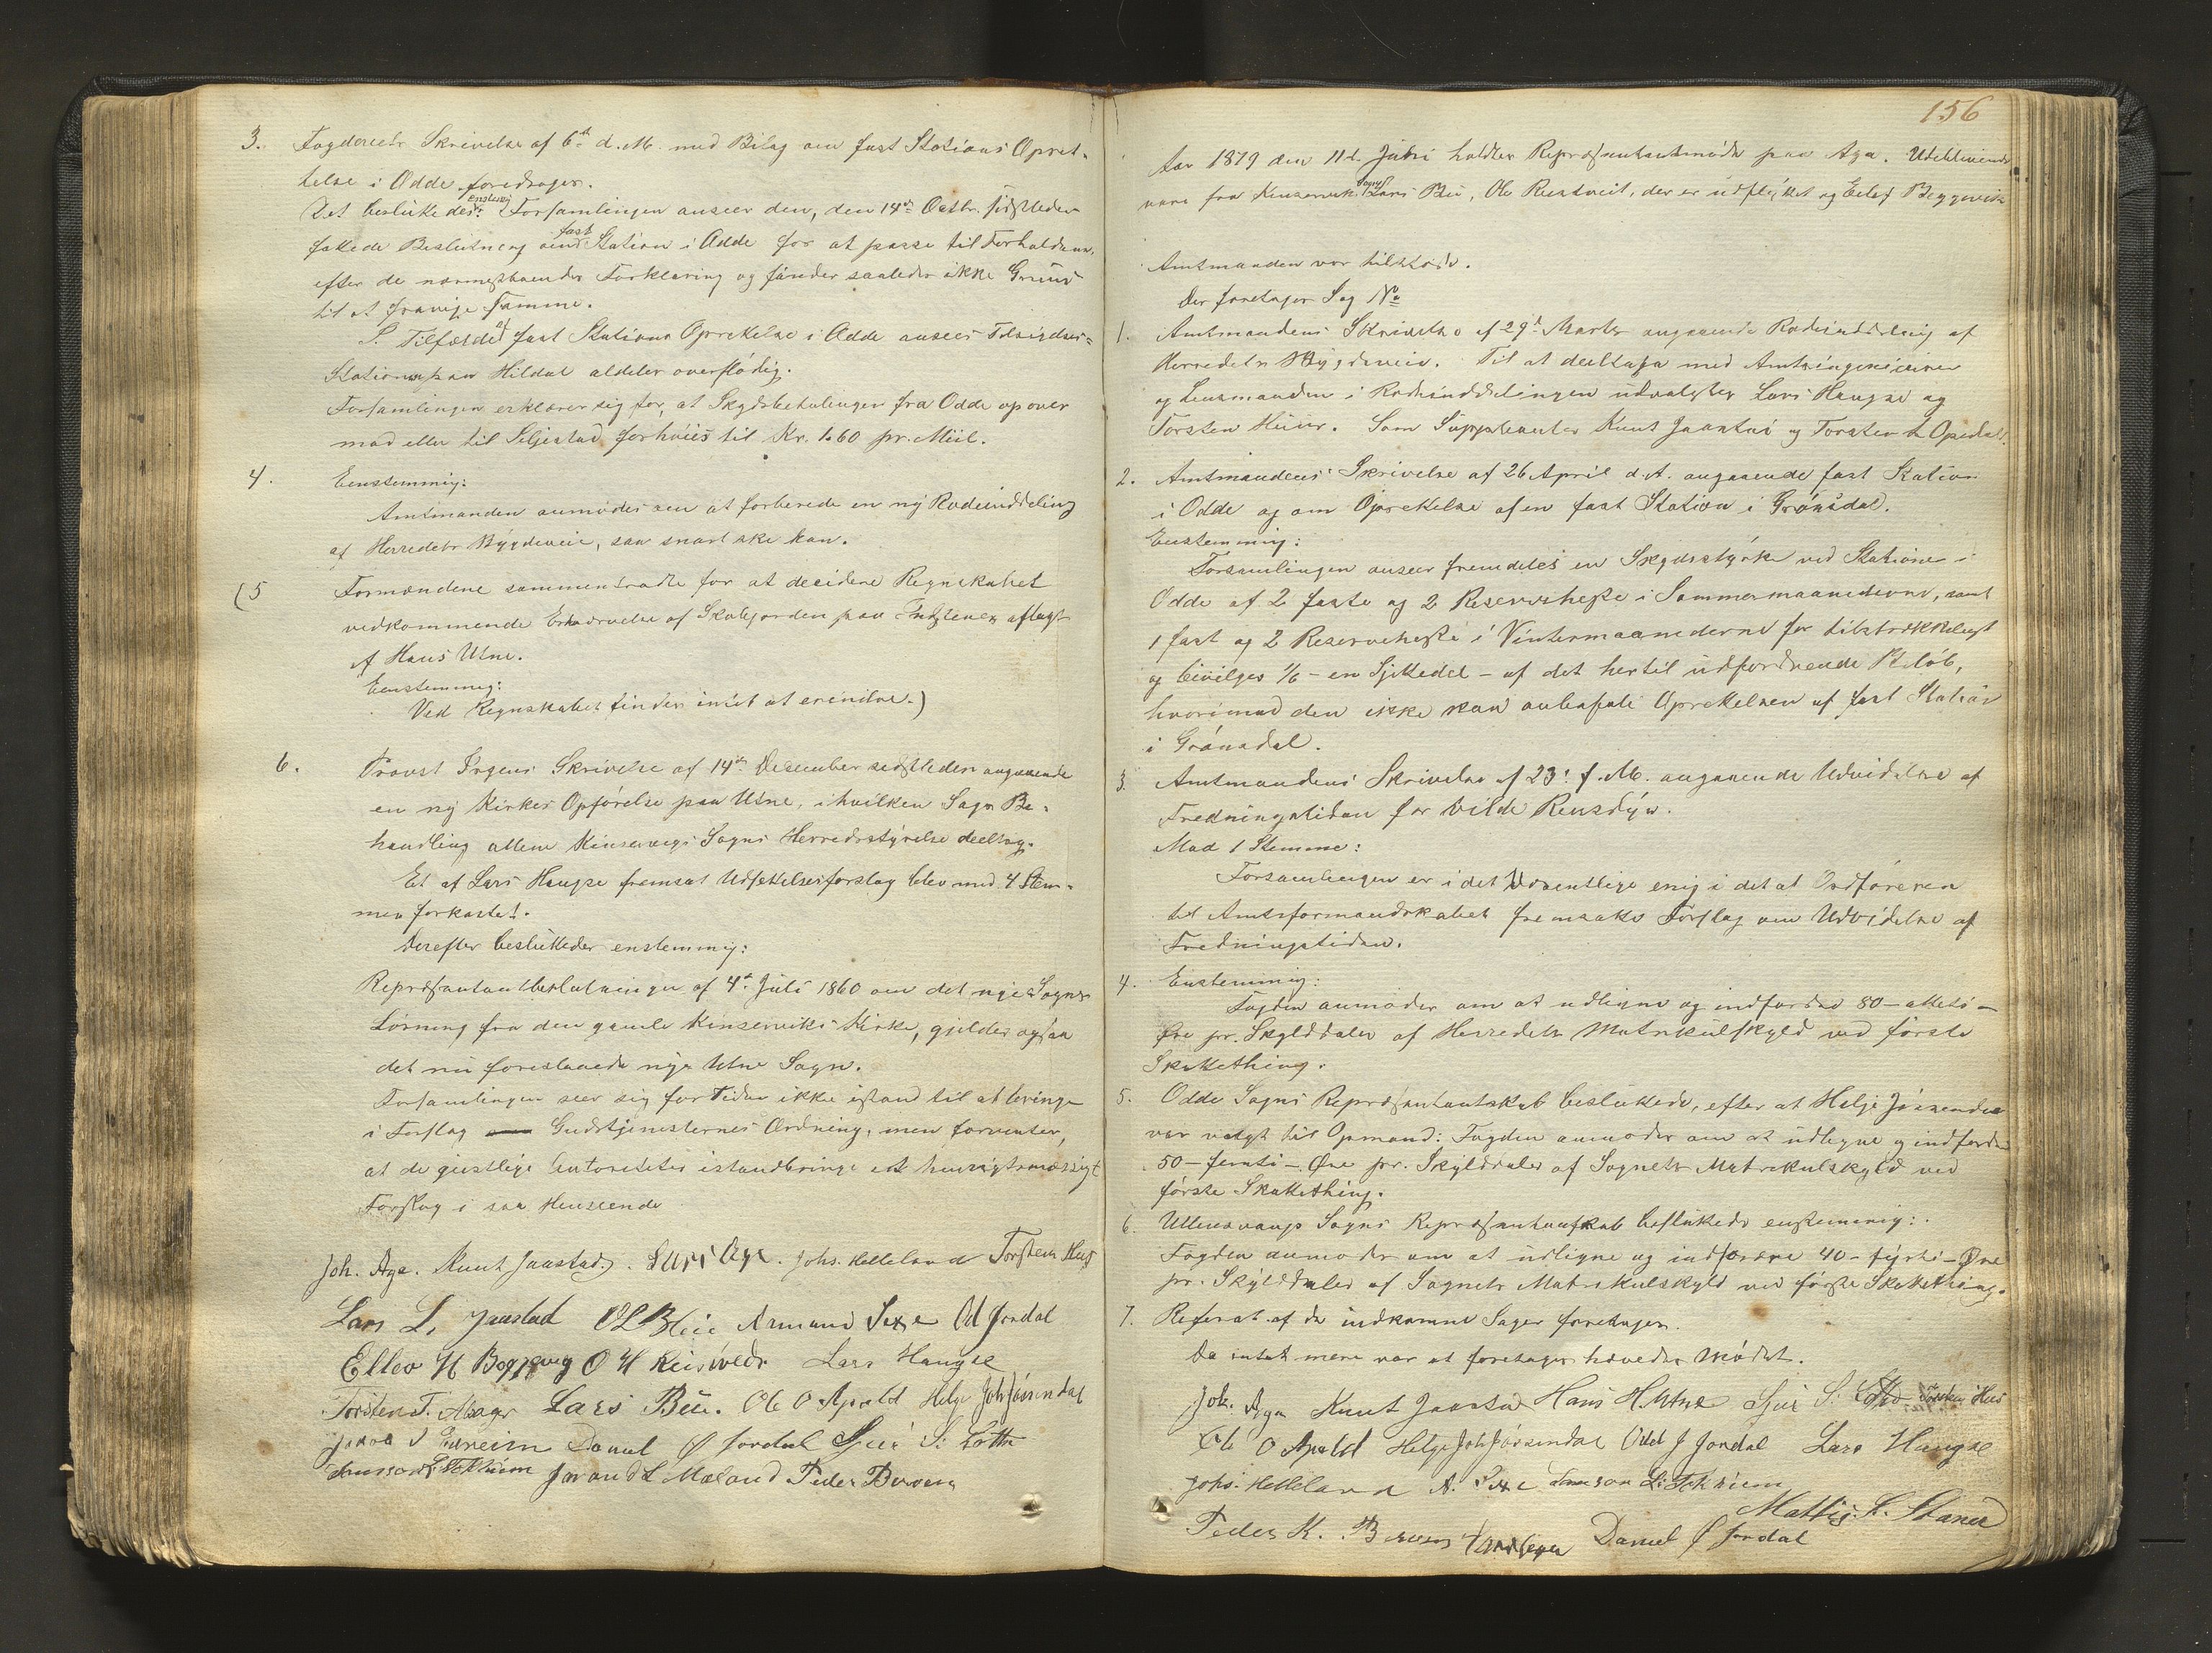 3. Fogderiets Skrivelse af 6te d. M. med Bilag om fast Stations Opret-
telse i Odde foredrages.
Det besluttedes enstemig: Forsamlingen anseer den, den 14de Octbr. sidstleden
fattede Beslutning om fast Station i Odde for at passe til Forholdene,
efter de nærmestboendes Forklaring og finder saaledes ikke Grund
til at fravige samme.
I Tilfælde af fast Stations Oprettelse i Odde ansees Tilsigelses-
Stationen paa Hildal aldeles overflødig.
Forsamlingen erklærer sig for, at Skydsbetalingen fra Odde opover
mod eller til Seljestad forhøies til Kr. 1.60 pr. Miil.
4. Eenstemmig:
Amtmanden anmodes om at forberede en ny Rodeinddeling
af Herredets Bygdeveie, saa snart ske kan.
(5 Formændene sammentraadte for at decidere Regnskabet
vedkommende Erhvervelse af Skolejorden paa aflagt
af Hans Utne.
Eenstemmig:
Ved Regnskabet findes intet at erindre.)
6. Provst Irgens Skrivelse af 14de December sidstleden angaaende
en ny Kirkes Opførelse paa Utne, i hvilken Sags Be-
handling allene Kinserviks Sogns Herredsstyrelse deeltog.
Et af Lars Haugse fremsat Udsættelsesforslag blev med 4 Stem-
mer forkastet.
Derefter besluttedes enstemmig:
Repræsentantbeslutningen af 4de Juli 1860 om det nye Sogns
Løsning fra den gamle Kinserviks Kirke, gjelder ogsaa
det nu foreslaaede nye Utne Sogn.
Forsamlingen seer sig for Tiden ikke istand til at bringe
i Forslag Gudstjenesternes Ordning, men forventer,
at de geistlige Autoriteter istandbringe et hensigtsmæssigt
Forslag i saa Henseende
Joh. Aga. Knut Jaastad. Lars Aga. Johs. Helleland Torsten Huus
Lars L. Jaastad O L Bleie Aamund Sexe Od Jordal
Ellev H O H Lars Haugse
Torsten T. Lars Bu. Ole O Apold Helge Joh Jøssendal
Daniel Ø Jordal Sjur S. Lothe
Tokheim L Mæland Peder
156
Aar 1879 den 11te Juni holdtes Repræsentantmøde paa Aga. Udeblivende
vare fra Kinservik Sogn Lars Bu, Ole Rustveit, der er udflyttet og Eilef
Amtmanden var tilstede.
Der foretages Sag No
1. Amtmandens Skrivelse af 29de Marts angaaende Rodeinddeling af
Herredets Bygdeveie. Til at deeltage med Amtsingeniøren
og Lensmanden i Rodeinddelingen udvalgtes Lars Haugse og
Torsten Huus. Som Suppleanter Knut Jaastad og Torsten L Opedal.
2. Amtmandens Skrivelse af 26 April d. A. angaaende fast Station
i Odde og om Oprettelse af en fast Station i Grønsdal.
Enstemmig:
Forsamlingen anseer fremdeles en Skydsstyrke ved Stationen i
Odde af 2 faste og 2 Reserveheste i Sommermaanederne, samt
1 fast og 2 Reserveheste i Vintermaanederne for tilstrækkeligt
og bevilges 1/6 - en Sjettedel - af det hertil udfordrende Beløb,
hvorimod den ikke kan anbefale Oprettelsen af fast Station
i Grønsdal.
3. Amtmandens Skrivelse af 23. f. M. angaaende Udvidelse af
Fredningstiden for vilde Rensdyr.
Mod 1 Stemme:
Forsamlingen er i det Væsentlige enig i det at Ordføreren
til Amtsformandskabet fremsatte Forslag om Udvidelse af
Fredningstiden.
4. Enstemmig:
Fogden anmodes om at udligne og indfordre 80 - otteti -
Øre pr. Skylddaler af Herredets Matrikulskyld ved første
Skattething.
5. Odde Sogns Repræsentantskab besluttede, efter at Helje Jøssendal
var valgt til Opmand: Fogden anmodes om at udligne og indfordre
50 - femti - Øre pr. Skylddaler af Sognets Matrikulskyld ved
første Skattething.
6. Ullensvangs Sogns Repræsentantskab besluttede enstemmig:
Fogden anmodes om at udligne og indfordre 40 - fyrti - Øre
pr. Skylddaler af Sognets Matrikulskyld ved første Skattething.
7. Referat af de indkomne Sager foretages.
Da intet mere var at foretages hævedes Mødet.
Joh. Aga Knut Jaastad Hans H. Utne Sjur S. Lothe Torsten Huus
Ole O Apold Helge Joh Jøssendal Odd J Jordal Lars Haugse
Johs. Helleland A. Sexe L. Tokheim
Mattis
Peder K. Daniel Ø Jordal